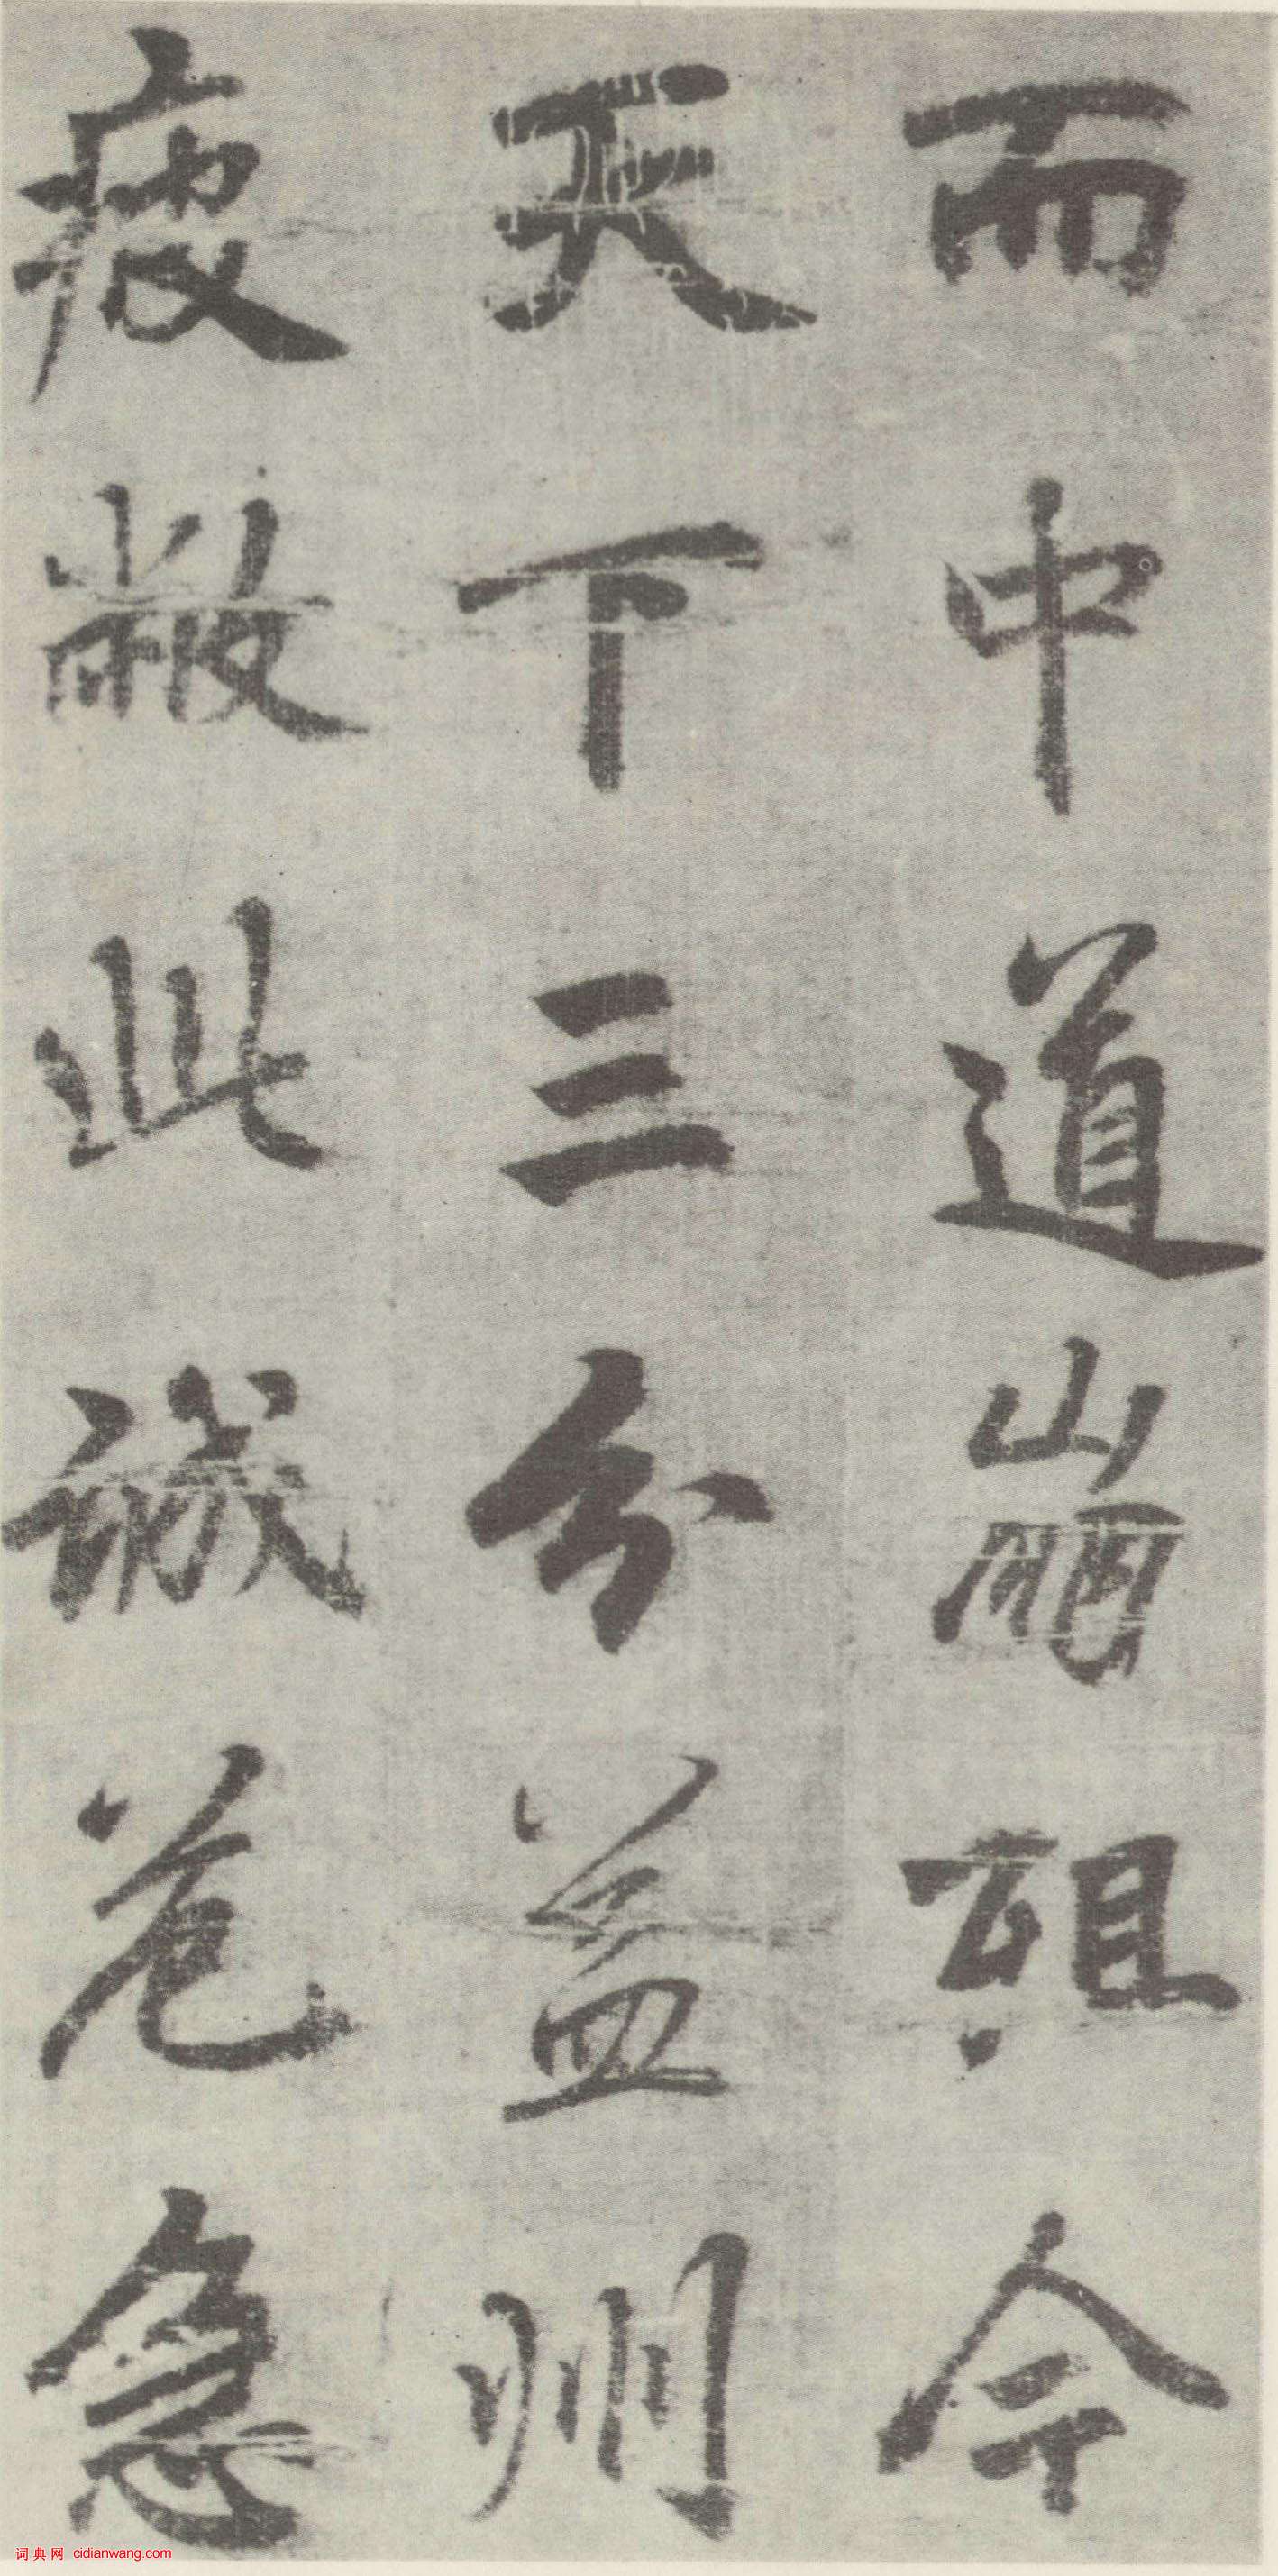 而中道崩殂今
天下三分益州
疲敝此誠危急
词典网 cidianwang.com